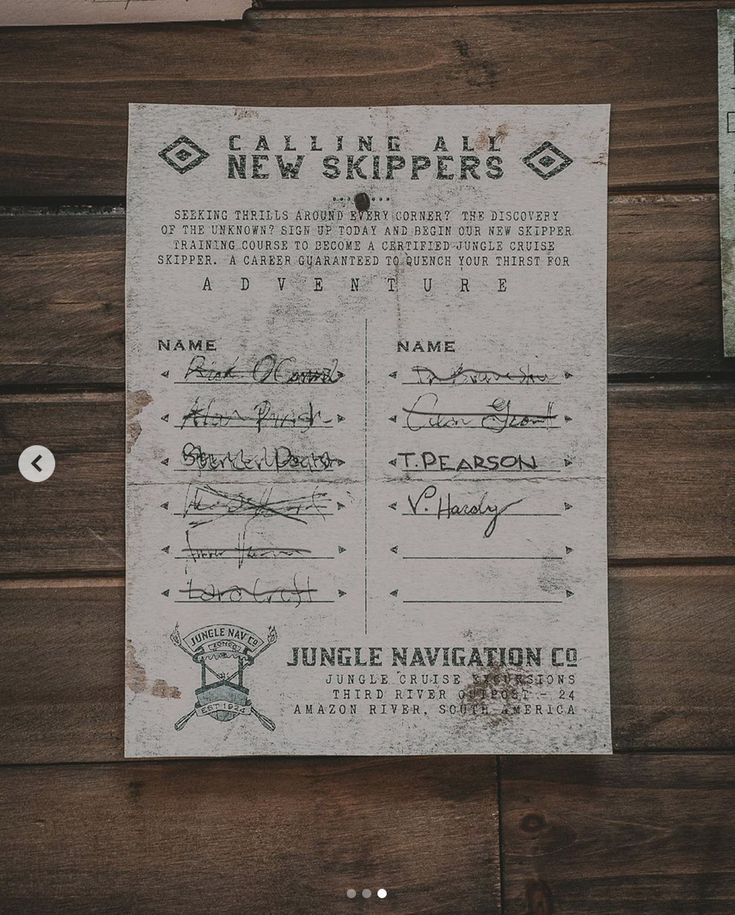 CALLING ALL
NEW SKIPPERS
SEEKING THRILLS AROUND EVERY CORNER? THE DISCOVERY
OF THE UNKNOWN? SIGN UP TODAY AND BEGIN OUR NEW SKIPPER
TRAINING COURSE TO BECOME A CERTIFIED JUNGLE CRUISE
SKIPPER. A CAREER GUARANTEED TO QUENCH YOUR THIRST FOR
ADVENTURE
NAME
Rick O'Connell
Alan Parrish
Lara Croft
NAME
Alan Grant
T. PEARSON
V. Hardy
JUNGLE NAV CO
EST 1924
JUNGLE NAVIGATION CO
JUNGLE CRUISE EXCURSIONS
THIRD RIVER OUTPOST - 24
AMAZON RIVER, SOUTH AMERICA